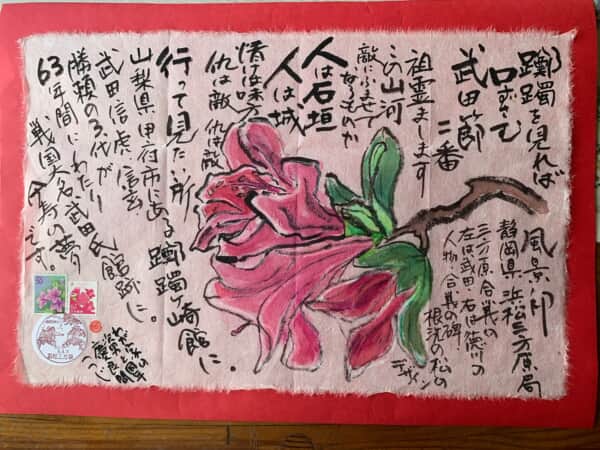 躑躅を見れば
口ずさむ
武田節 二番
祖霊まします
この山河
敵にふませて
なるものか
人は石垣
人は城
情けは味方
仇は敵 仇は敵
行って見たい所
山梨県甲府市にある躑躅ヶ崎館に。
武田信虎、信玄
勝頼の3代が
63年間にわたり
戦国大名武田氏館跡に。
今春の夢
です。
風景印
静岡県浜松三方原局
三方原合戦の
左は武田・右は徳川の
人物・合戦の碑・
根洗の松の
デザイン
50